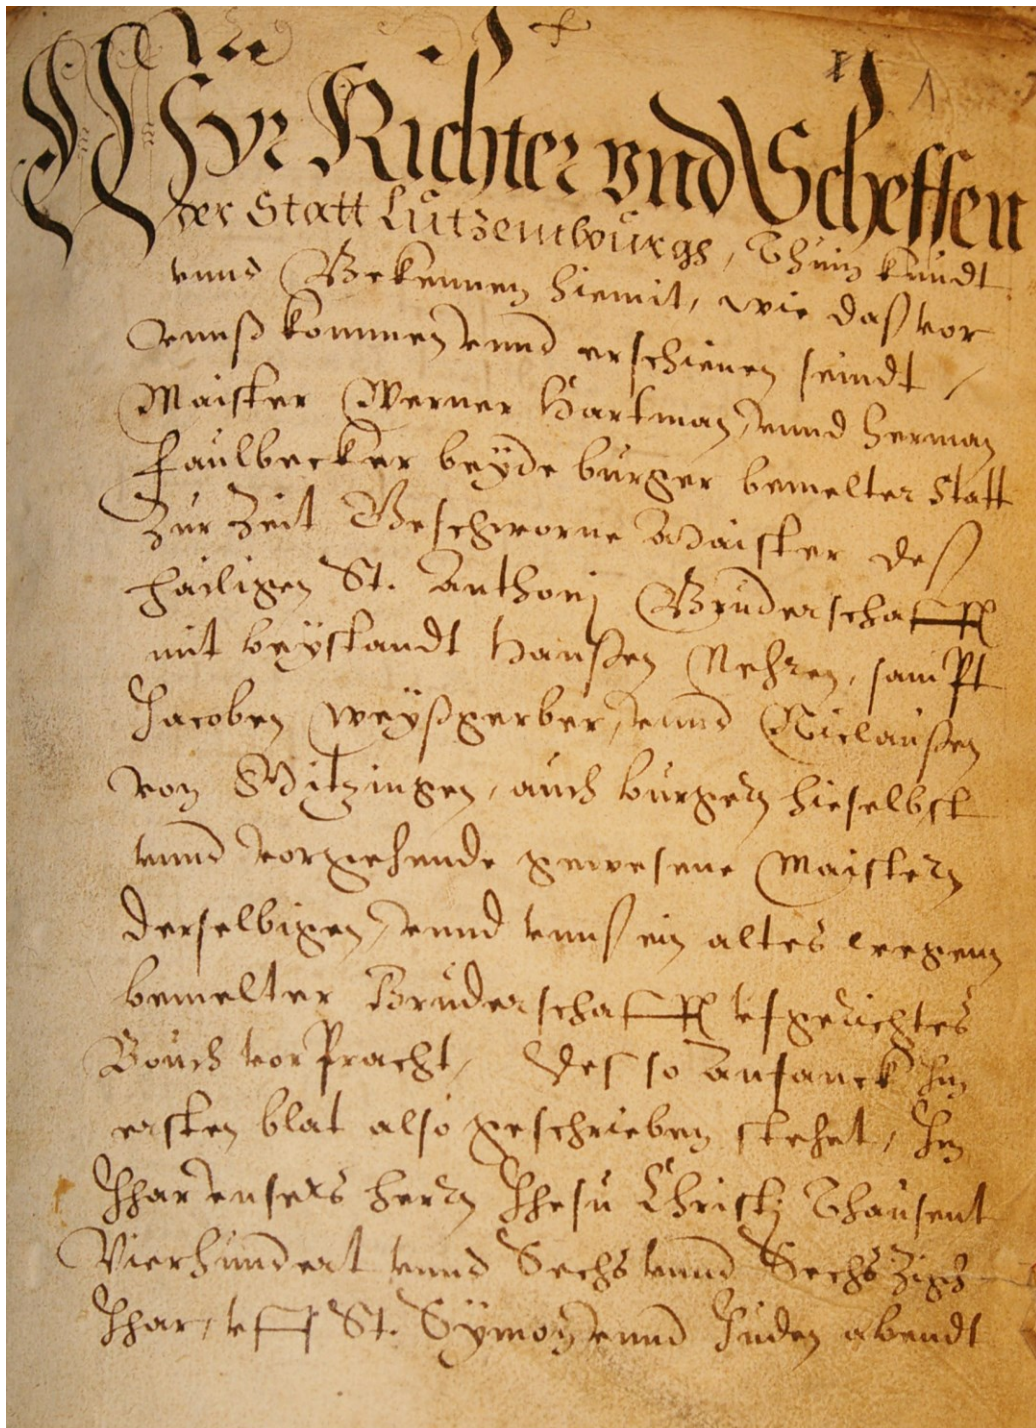 1
Wyr Richter vnd Scheffen
der Statt Lützemburgh, Thun kundt
vnnd Bekennen hiemit, wie daß vor
vnnß kommen vnnd erschienen seindt,
Maister Werner Hartman, vnnd Herman
Faulbecker beÿde burger bemelter Statt
Zur Zeit Geschworne Maister deß
Hailigen St. Anthonj Bruderschafft
mit beÿstandt Hanßen Nehren, sampt
Jacoben Weÿßgerber, vnnd Niclaußen
von Mitzingen, auch burgern hieselbst
vnnd vorgehende gewesene Maistern
derselbigen, vnnd vnnß ein altes wegenn
bemelter Bruderschafft vfgerichtes
Bouch vorpracht, des so anfanck Im
ersten blat also geschrieben stehet, Im
Jhar vnsers hern Jhesu Christj Thausent
Vierhundert vnnd Sechs vnnd Sechszigh
Jhar, vff St. Sÿmon vnnd Juden abendt